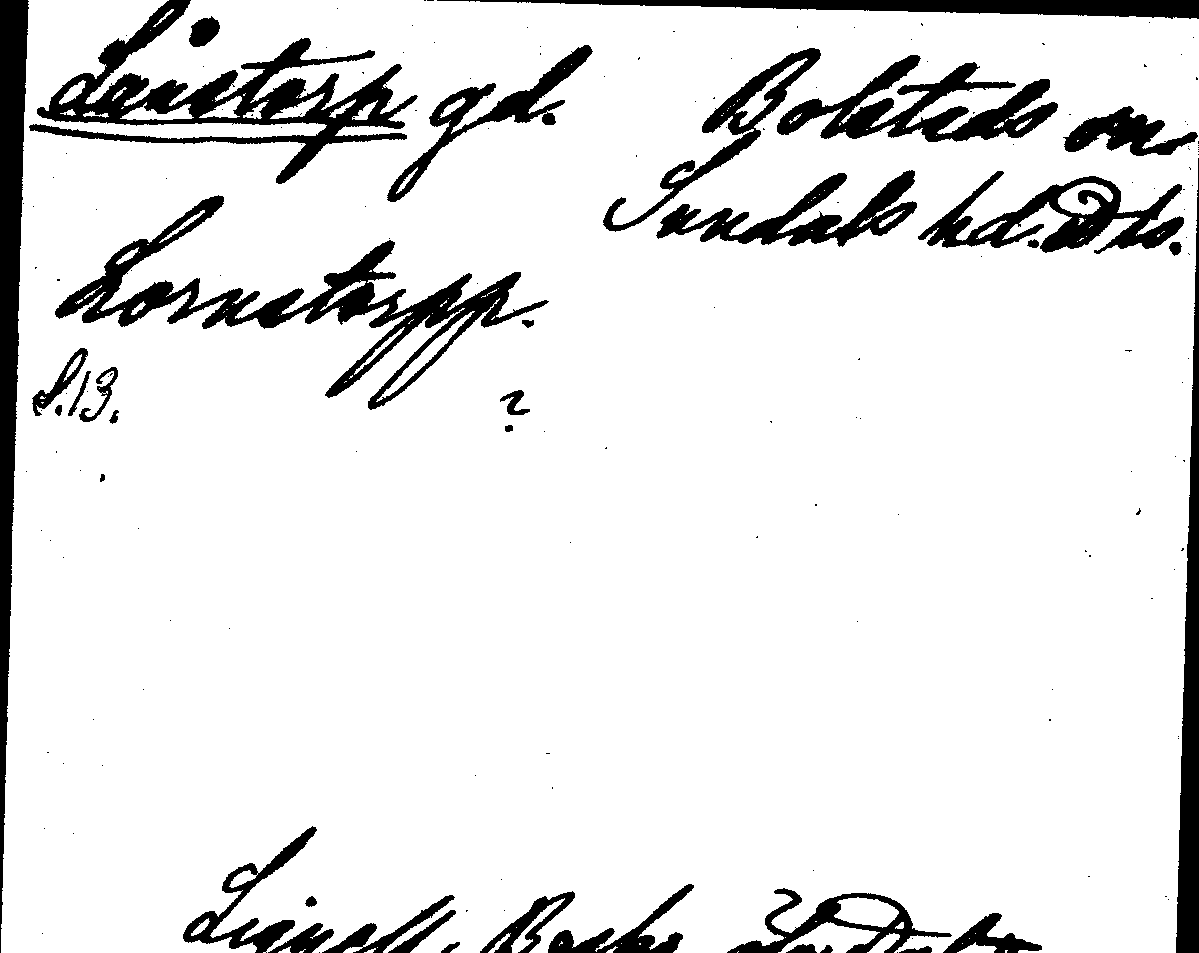 Lånstorp gd. Bolstads sn
Sundals hd. Dls.
Lornstorpp.
S.13. ?
Lignell, Beskr.